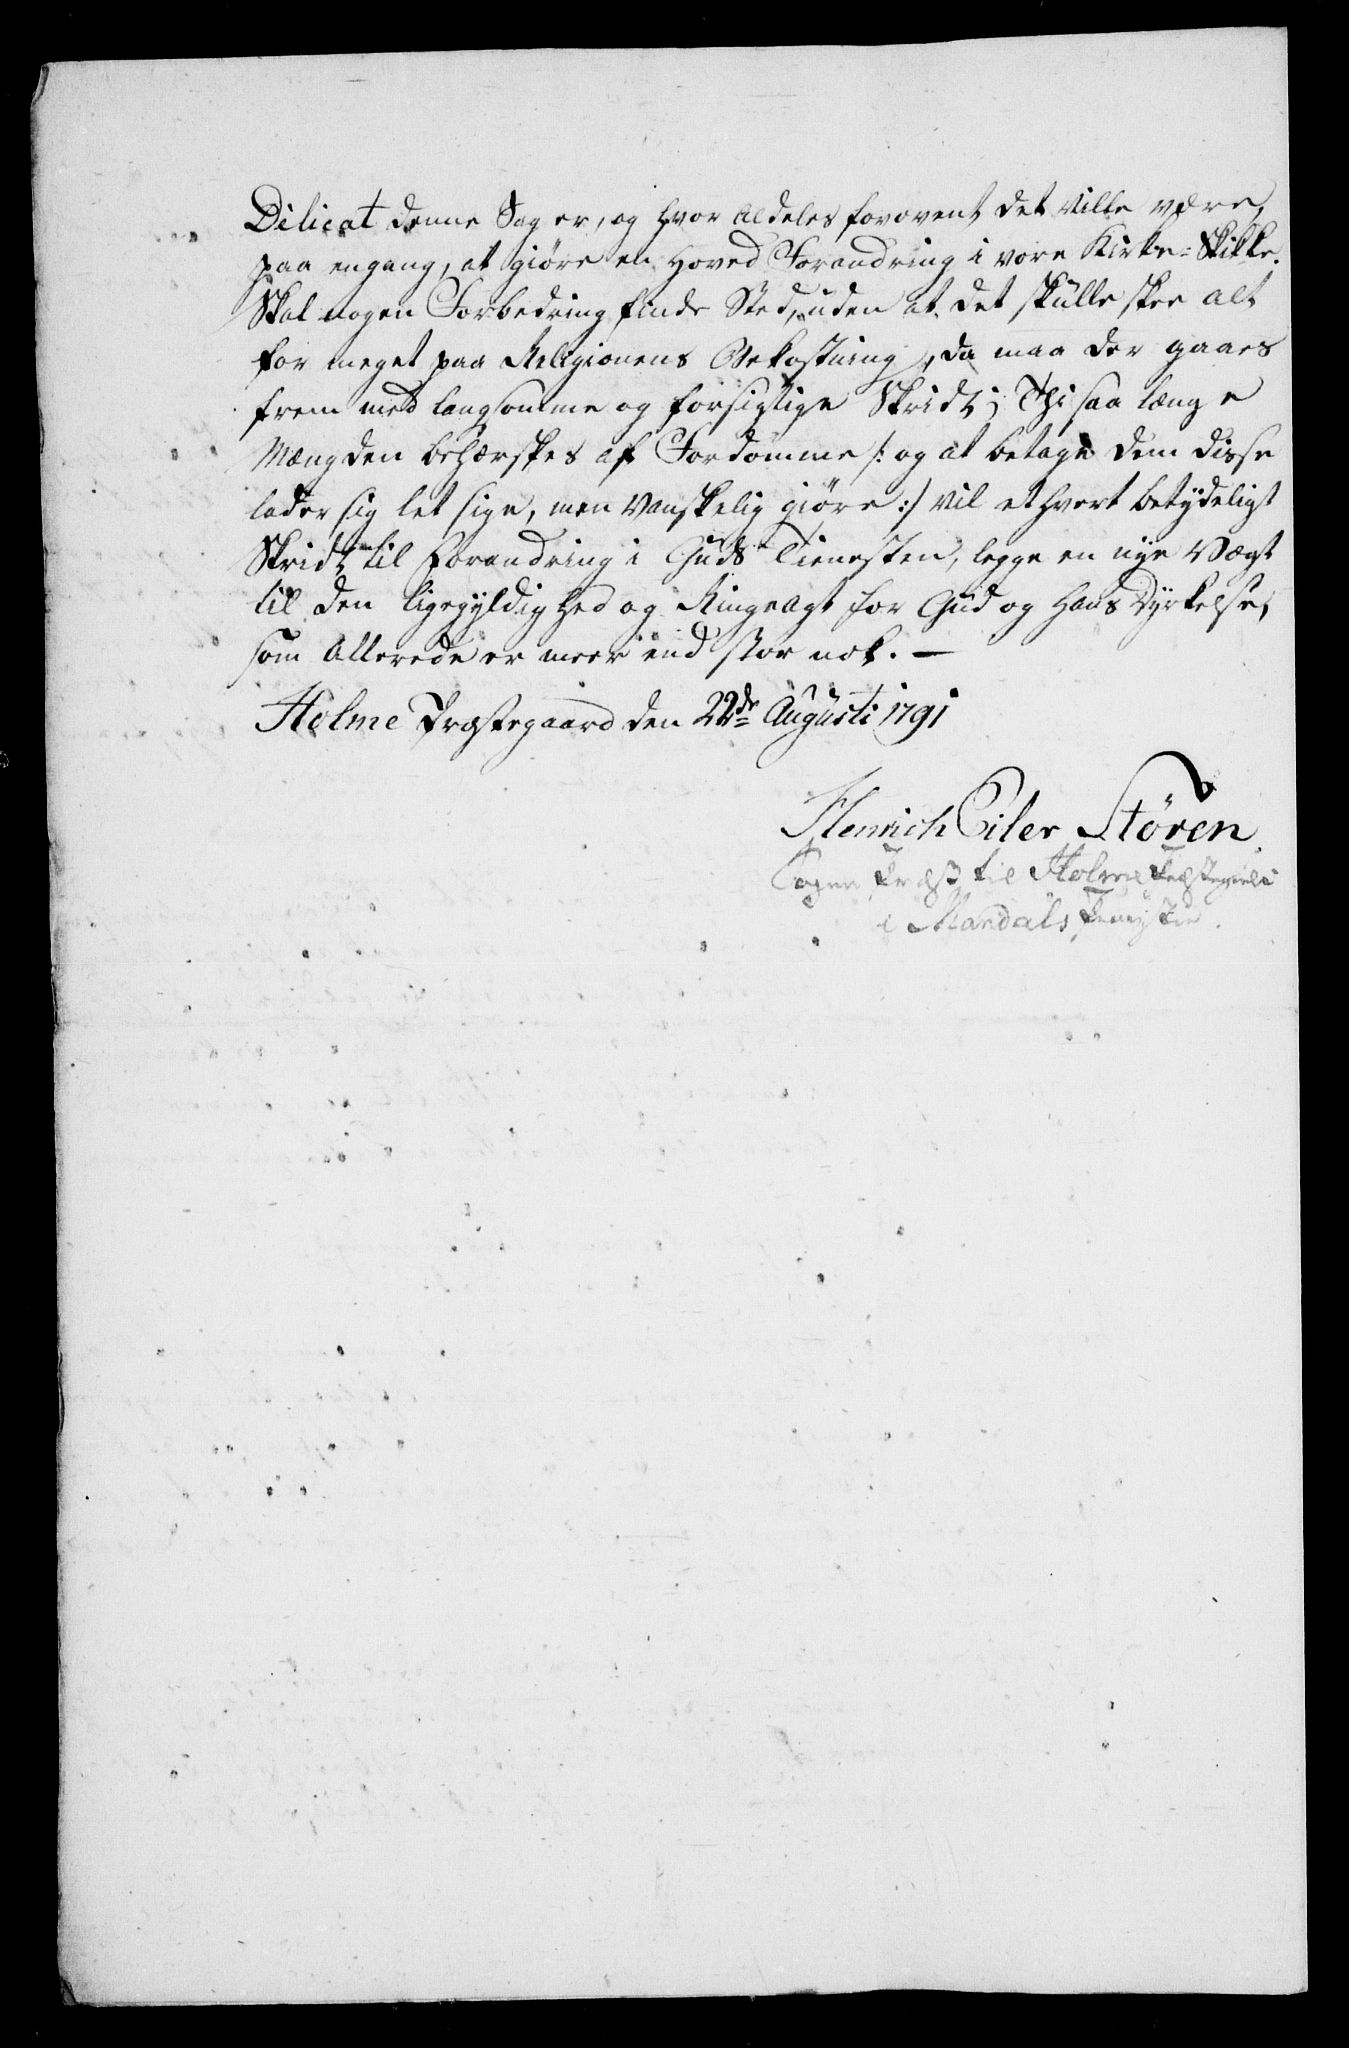 Dilicat denne Sag er, og hvor aldeles forovent det ville være,
paa engang, at giøre en Hoved Forandring i vore Kirke=Skikke.
Skal nogen Forbedring finde Sted, uden at det skulle skee alt
for meget paa Religionens Bekostning, da maa der gaaes
frem med langsomme og forsigtige Skridt; Thi saa længe
Mængden behærskes af Fordomme /: og at betage dem disse
lader sig let sige, men vanskelig giøre :/ vil ethvert betydeligt
Skridt til Forandring i Guds Tienesten, legge en nye Vægt
til den ligegyldighed og Ringeagt for Gud og Hans Dyrkelse,
som allerede er meer end stor nok. —
Holme Præstegaard den 22de Augusti 1791
Henrich Eiler Stören
Sogne Præst til Holme Præstegield
i Mandals